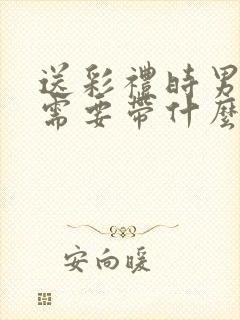 送彩禮時男
需要帶什麼
安向暖